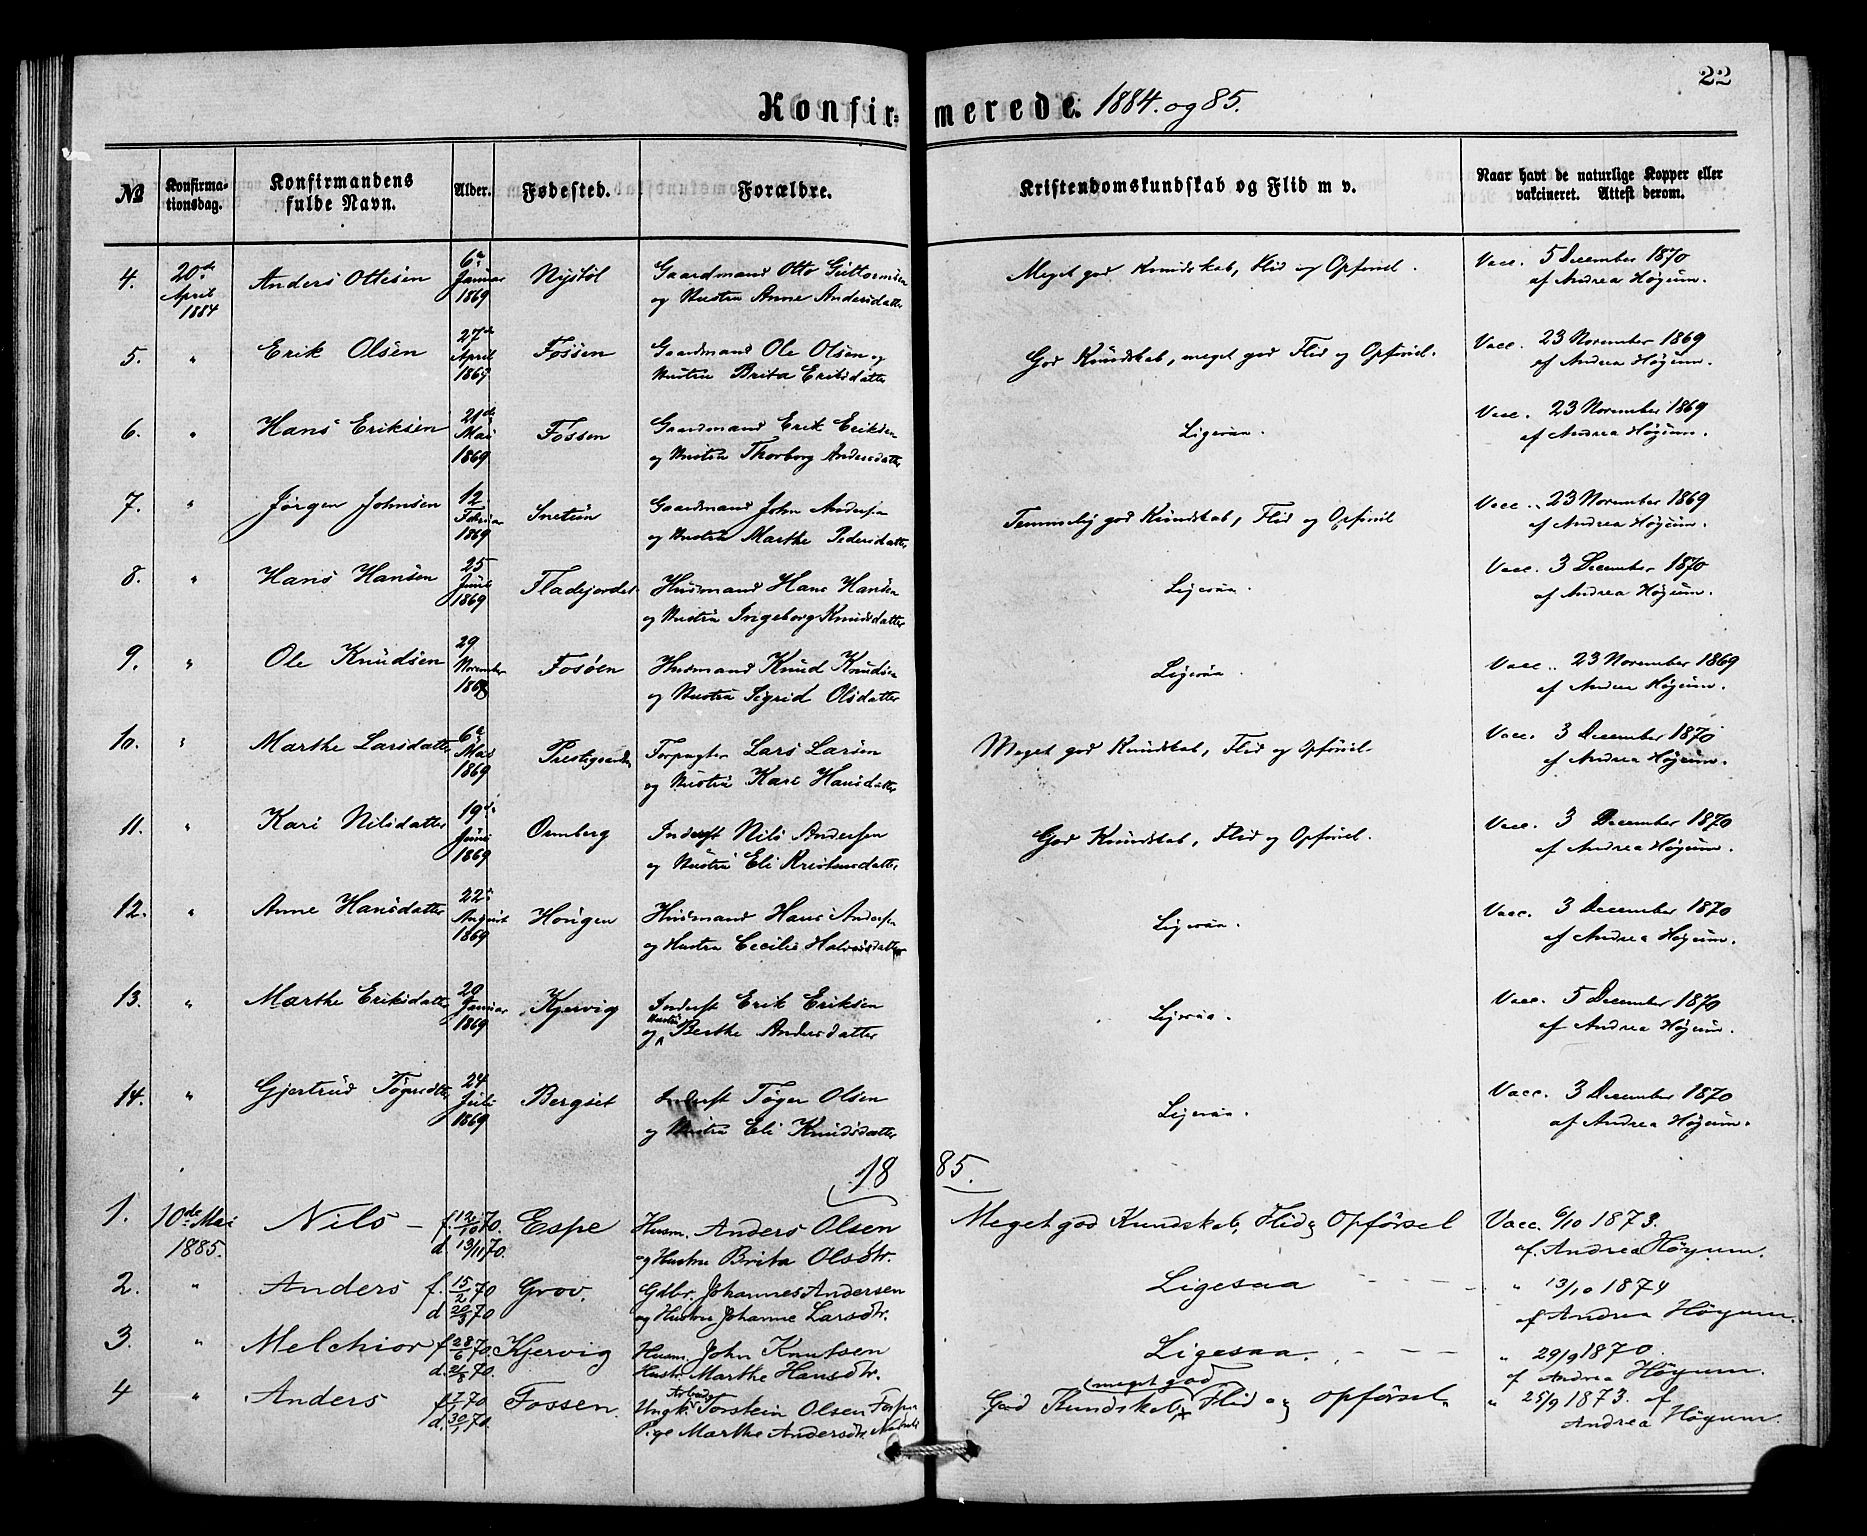 22
Konfirmerede. 1884. og 85.
No Konfirmationsdag. Konfirmandens fulde Navn. Alder. Fødested. Forældre. Kristendomskundskab og Flid m v. Naar havt de naturlige Kopper eller vakcineret. Attest derom.
4. 20de April 1884 Anders Ottesen 6te Januar 1869 Nystøl Gaardmand Otto Guttormsen Meget god Kundskab, Flid og Opførsel. Vacc. 5 December 1870
og Hustru Anne Andersdatter af Andrea Høyum.
5. " Erik Olsen 27de April 1869 Fossen Gaardmand Ole Olsen og God Kundskab, meget god Flid og Opførsel. Vacc. 23 November 1869
Hustru Brita Eriksdatter af Andrea Høyum.
6. " Hans Eriksen 21de Mai 1869 Fossen Gaardmand Erik Eriksen Ligesaa. Vacc. 23 November 1869
og Hustru Thorborg Andersdatter af Andrea Høyum.
7. " Jørgen Johnsen 12 Februar 1869 Gaardmand John Andersen Temmelig god Kundskab, Flid og Opførsel Vacc. 23 November 1869
og Hustru Marthe Pedersdatter af Andrea Høyum.
8. " Hans Hansen 25 Juni 1869 Fladejordet Husmand Hans Hansen Ligesaa. Vacc. 3 December 1870
og Hustru Ingeborg Knudsdatter af Andrea Høyum.
9. " Ole Knudsen 29 November 1868 Fosøen Husmand Knud Knudsen Ligesaa. Vacc. 23 November 1869
og Hustru Sigrid Olsdatter af Andrea Høyum.
10. " Marthe Larsdatter 6te Mai 1869 Forpagter Lars Larsen Meget god Kundskab, Flid og Opførsel Vacc. 3 December 1870
og Hustru Kari Hansdatter af Andrea Høyum.
11. " Kari Nilsdatter 19de Juni 1869 Ormberg Inderst Nils Andersen God Kundskab, Flid og Opførsel. Vacc. 3 December 1870
og Hustru Eli Kristensdatter af Andrea Høyum.
12. " Anne Hansdatter 22de August 1869 Husmand Hans Andersen Ligesaa. Vacc. 3 December 1870
og Hustru Cecilie Halvorsdatter af Andrea Høyum.
13. " Marthe Eriksdatter 20 Januar 1869 Kjørvig Inderst Erik Eriksen Ligesaa. Vacc. 5 December 1870
og Hustru Berthe Andersdatter af Andrea Høyum.
14. " Gjertrud 24 Juli 1869 Bergset Inderst Tøger Olsen Ligesaa. Vacc. 3 December 1870
og Hustru Eli Knudsdatter af Andrea Høyum.
1885.
1. 10de Mai 1885. Nils – f. 12/10 70. d. 13/11 70. Espe Husm. Anders Olsen Meget god Kundskab, Flid og Opførsel Vacc. 6/10 1873.
og Hustru Brita Olsdtr. af. Andrea Høyum.
2. " Anders f. 15/2 70 d. 20/3 70 Grov. Gdbr. Johannes Andersen Ligesaa – – – " 13/10 1874
og Hustru Johanne Larsdtr. af Andrea Høyum.
3. " Melchior f. 28/6 70. d. 70. Kjørvig Husm. John Knutsen Ligesaa. – – – " 29/9 1870.
Hustr. Marthe Hansdtr. af Andrea Høyum.
4 " Anders f. 70 d. 70. Fossen. Ungk. Torstein Olsen God Kundskab, meget god Flid og Opførsel. " 25/9 1873. af
Pige Marthe Andersdtr. Andrea Høyum.